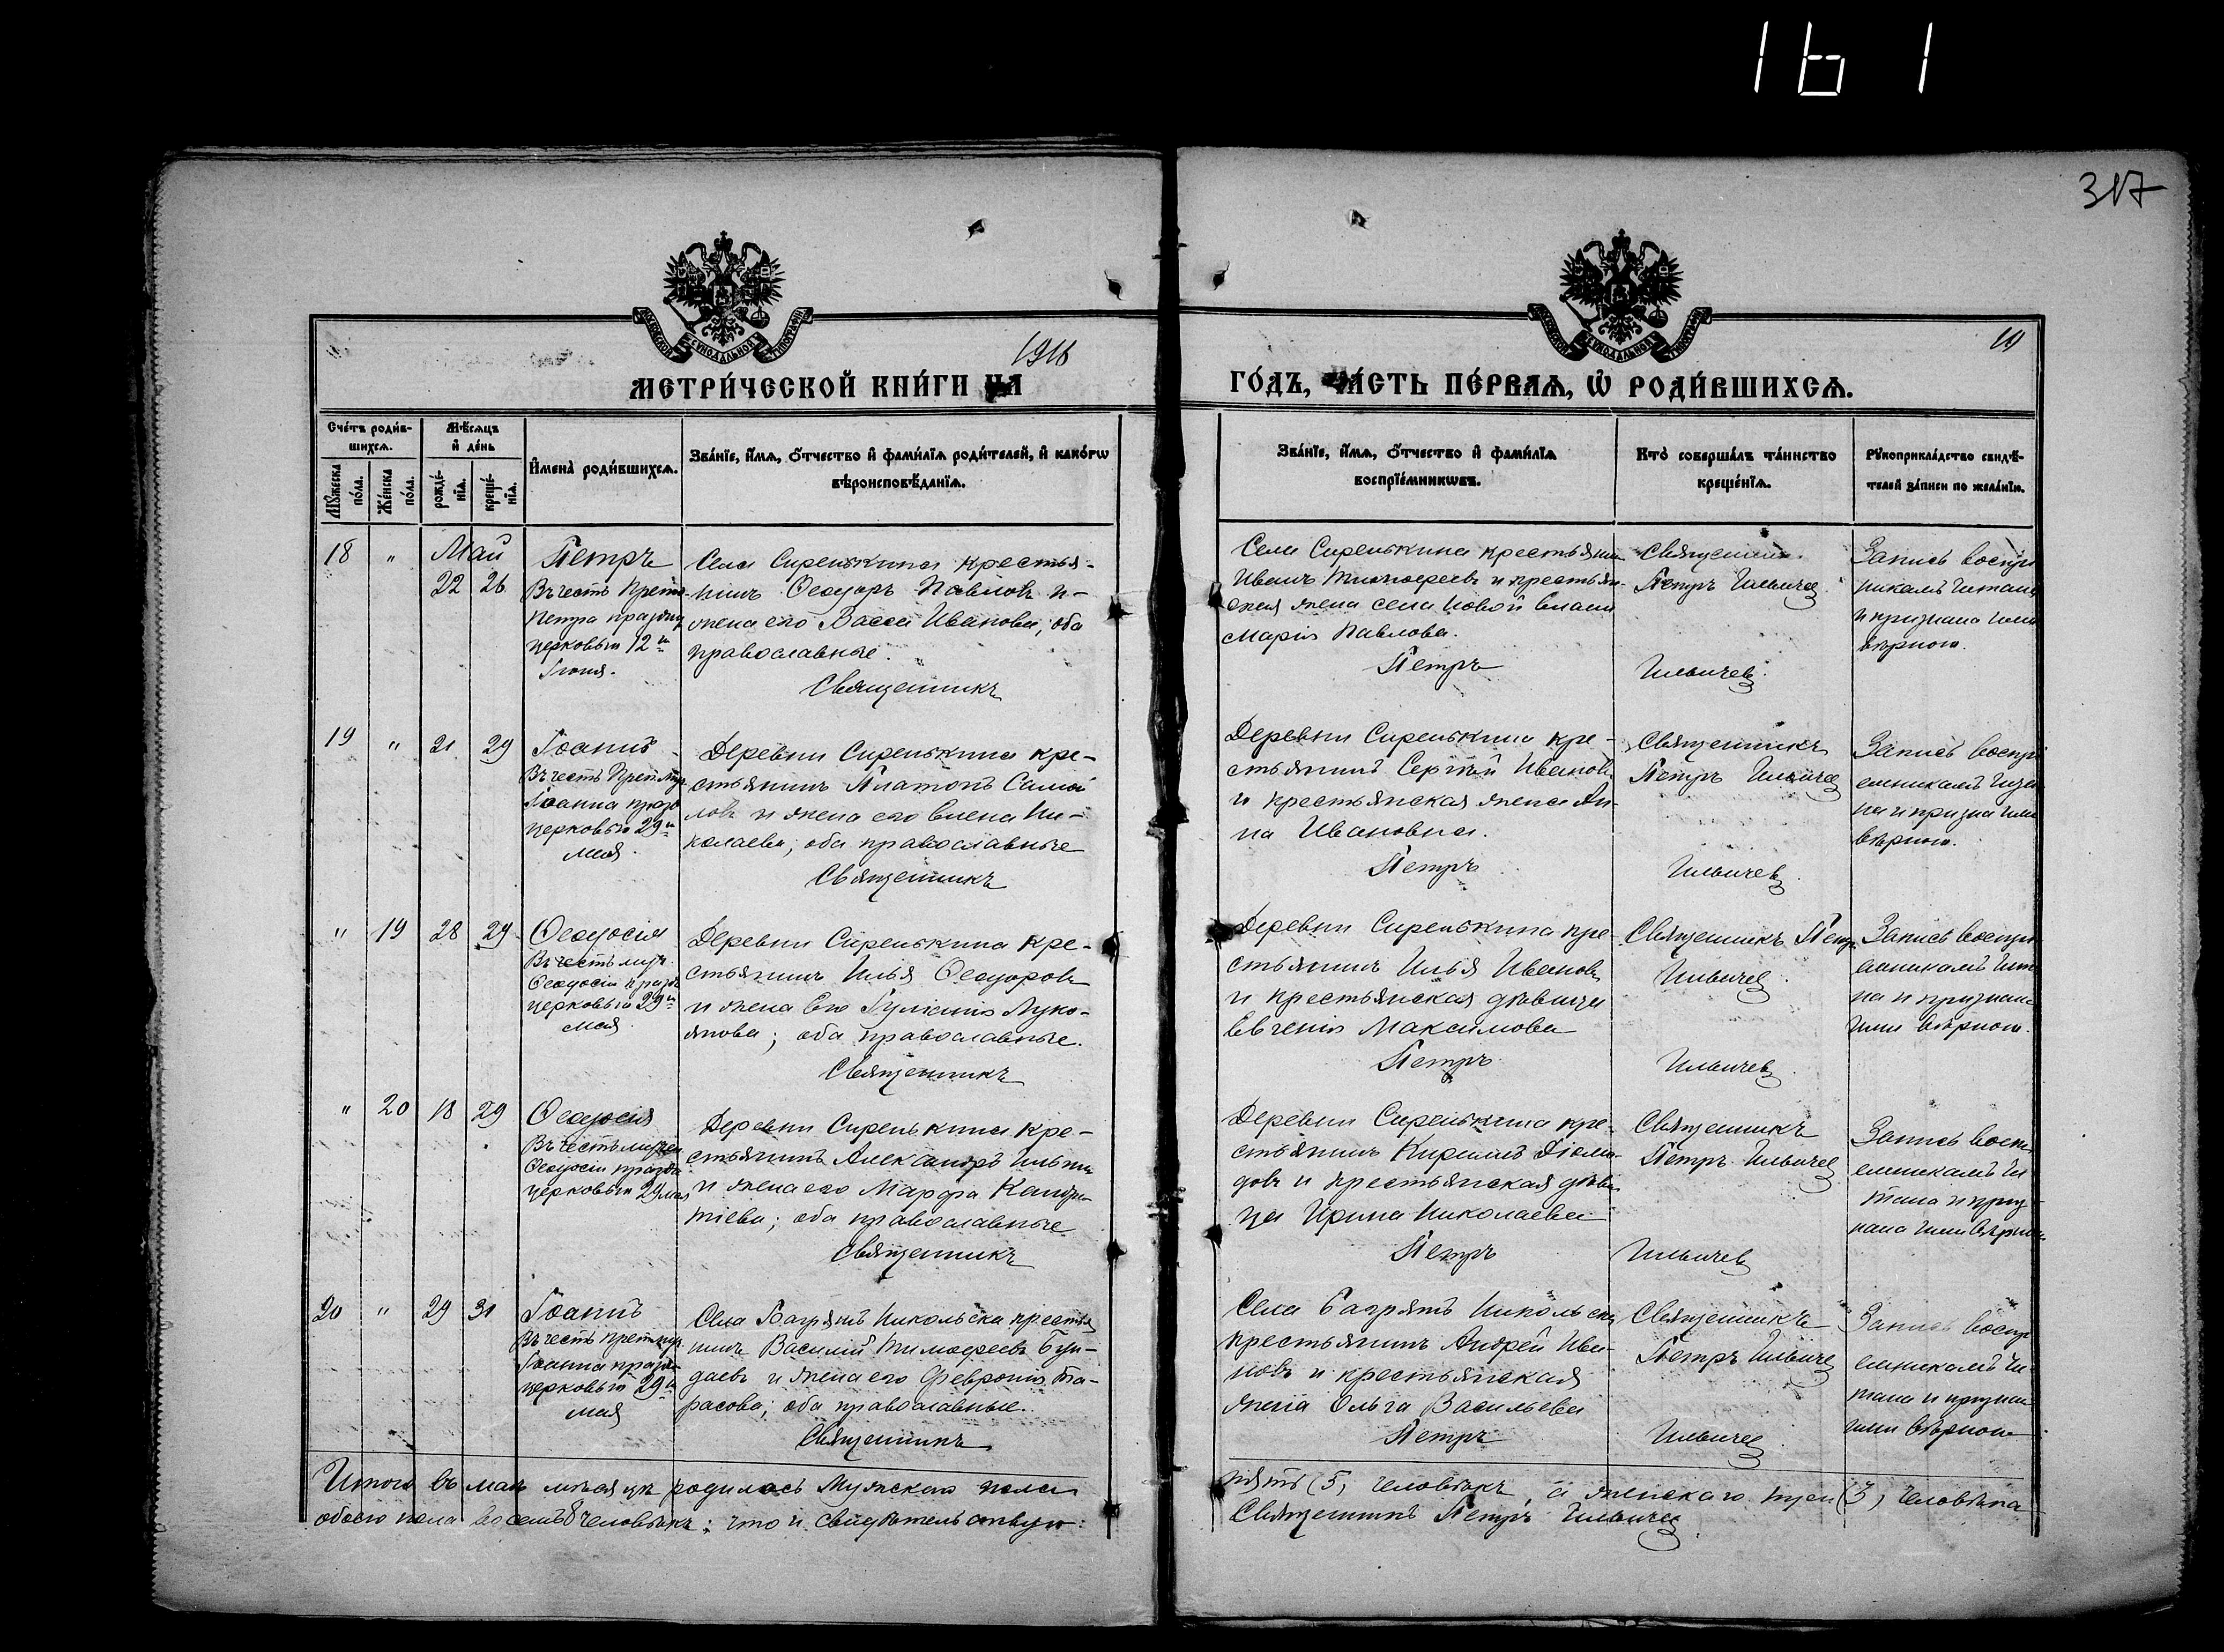 161
317
1916
10
МЕТРИ́ЧЕСКОЙ КНИ́ГИ НА
ГО́ДЪ, ЧА́СТЬ ПЕ́РВАѦ, Ѡ РОДИ́ВШИХСѦ.
Сче́тъ роди́в-
шихсѧ.
Мѣ́сѧцъ
и҆ де́нь
Мꙋ́жеска
по́ла.
Же́нска
по́ла.
рожде́-
нїѧ.
креще́-
нїѧ.
И҆мена̀ роди́вшихсѧ.
Зва́нїе, и҆́мѧ, ѻ҆́тчество и҆ фами́лїѧ роди́телей, и҆ како́гѡ
вѣроисповѣ́данїѧ.
Зва́нїе, и҆́мѧ, ѻ҆́тчество и҆ фами́лїѧ
воспрїе́мникѡвъ.
Кто̀ соверша́лъ та́инство
креще́нїѧ.
Рꙋкоприкла́дство свидѣ́-
телей за́писи по жела́нїю.
18 " Май
22 26
Петръ
Въ честь Преп.
Петра праздн.
церковью 12го
Iюня.
Села Сиренькина крестья-
нинъ Ѳеодоръ Павловъ и
жена его Васса Иванова, оба
православные.
Священникъ
Села Сиренькина крестьянин
Иванъ Тимоѳеевъ и крестьян-
ская жена села Новой
Марiя Павлова.
Петръ
Священник.
Петръ Ильичев
Ильичевъ.
Запись воспрi
никамъ читана
и признана ими
вѣрною.
19 " 21 29
Iоаннъ
Въ честь Преп.
Iоанна празд
церковью 29го
мая.
Деревни Сиренькина кре-
стьянинъ Платонъ Самой
ловъ и жена его Елена Ни-
колаева; оба православные
Священникъ
Деревни Сиренькина кре-
стьянинъ Сергѣй Ивановъ
и крестьянская жена Ан-
на Иванова.
Петръ
Священникъ
Петръ Ильичев
Ильичевъ.
Запись воспрi
емникамъ
на и призна ими
вѣрною.
" 19 28 29
Ѳеодосiя
Въ честь муч.
Ѳеодосiи празд
церковью 29го
мая.
Деревни Сиренькина кре-
стьянинъ Илья Ѳеодоровъ
и жена его Iулiанiя Луко-
янова; оба православные.
Священникъ
Деревни Сиренькина кре-
стьянинъ Илья Ивановъ
и крестьянская дѣвица
Евгенiя Максимова
Петръ
Священникъ Петр
Ильичев.
Ильичевъ.
Запись воспрi
емникамъ чит
на и признана
ими вѣрною.
" 20 18 29
Ѳеодосiя
Въ честь мучен
Ѳеодосiи праздн
церковью 29 мая
Деревни Сиренькина кре-
стьянинъ Александръ Ильинъ
и жена его Марфа
тiева; оба православные
Священникъ
Деревни Сиренькина кре-
стьянинъ Кириллъ Дiоми-
довъ и крестьянская дѣви
ца Ирина Николаева
Петръ
Священникъ
Петръ Ильичев
Ильичевъ
Запись воспр
емникамъ чи
тана и приз
нана ими вѣрною
20 " 29 31
Iоаннъ
Въ честь преп.
Iоанна празд
церковью 29го
мая
Села Багрянъ Никольска крестья
нинъ Василiй Тимоѳеевъ Бун-
даевъ и жена его Февронiя Та-
расова; оба православные.
Священникъ
Села Багрянъ Никольска
крестьянинъ Андрей Ива-
новъ и крестьянская
жена Ольга Васильева
Петръ
Священникъ
Петръ Ильичев
Ильичев.
Запись воспр
емникамъ чи
тана и признан
ими вѣрною
Итого въ маѣ мѣсяцѣ родилось мужскаго пола
пять (5) человѣкъ, а женскаго три (3) человѣка
обоего пола восемь 8 человѣкъ; что и свидѣтельствую:
Священникъ Петръ Ильичев.